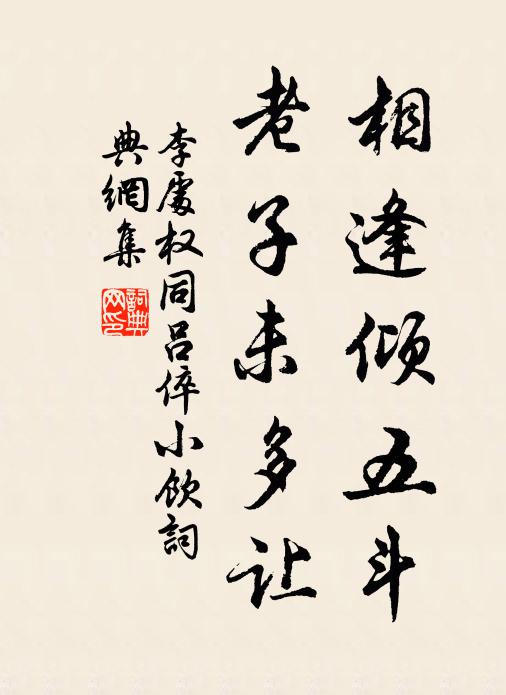 相逢倾五斗
老子未多让
李處权同吕倅小飲詞
典網集
詞典
网印